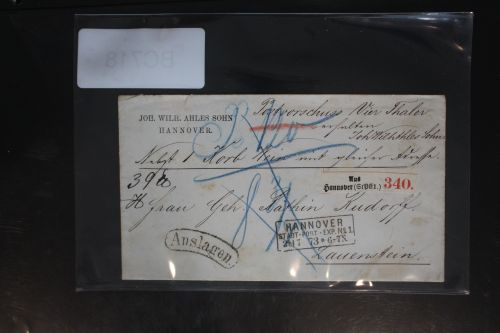 BC718
JOH. WILH. AHLES SOHN
HANNOVER.
Postvorschuss Vier Thaler
erhalten
Joh Wilh Ahles Sohn
Nebst 1 Korb Wein mit gleicher Adresse.
Aus
Hannover (StPE 1.) 340.
39
Frau Geh. Räthin Rudorff
Auslagen.
HANNOVER
STADT-POST-EXP. No 1.
2 17 73 * 6-7N
Lauenstein.